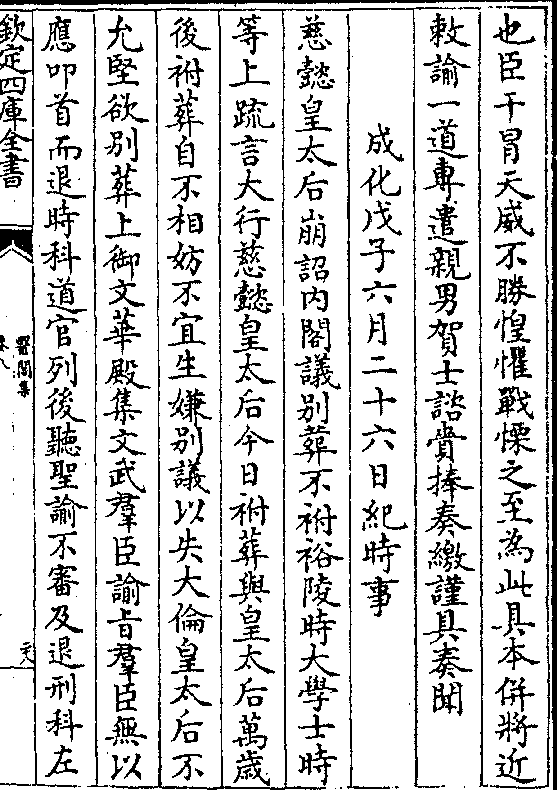 也臣干冒天威不勝惶懼戰慄之至為此具本併將近
敕諭一道專遣親男賀士諮賫捧奏繳謹具奏聞
成化戊子六月二十六日紀時事
慈懿皇太后崩詔内閣議别葬不祔裕陵時大學士時
等上疏言大行慈懿皇太后今日祔葬與皇太后萬歲
後祔葬自不相妨不宜生嫌别議以失大倫皇太后不
允堅欲别葬上御文華殿集文武羣臣諭旨羣臣無以
應叩首而退時科道官列後聽聖諭不審及退刑科左
欽定四庫全書
醫閭集
卷八